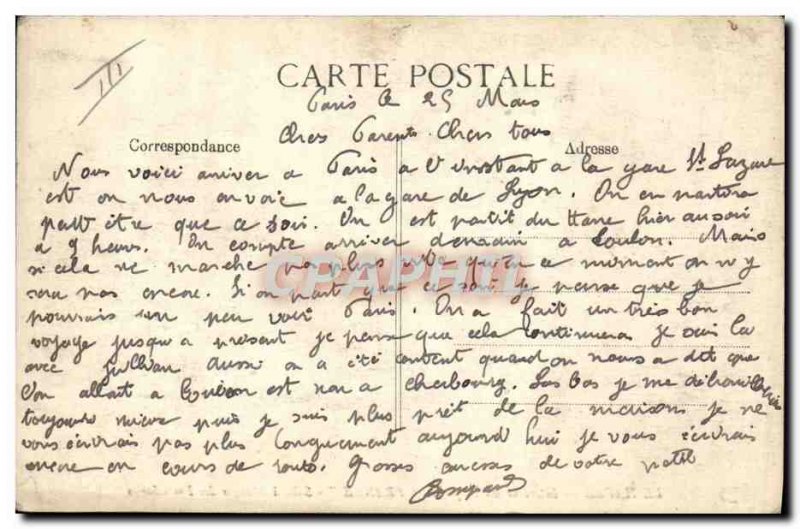 CARTE POSTALE
Paris le 25 Mars
Chers Parents Chers tous
Correspondance
Adresse
Nous voici arriver a Paris a l'instant a la gare St Lazare
est on nous envoie a la gare de Lyon. On en partira
peut être que ce soir. On est partit du Havre hier au soir
a 9 heures. On compte arriver demain a Toulon. Mais
si cela ne marche pas plus vite qu'en a moment on n'y
sera pas encore. Si on part que ce soir je pense que je
pourrais un peu voir Paris. On a fait un très bon
voyage jusqu'a present je pense que cela continuera je suis la
avec Jullian aussi on a été content quand on nous a dit que
l'on allait a Toulon est non a Cherbourg. Las bas je me débrouillerai
toujours mieux puis je suis plus prêt de la maison je ne
vous écrirais pas plus longuement aujourd hui je vous écrirais
encore en cours de route. Grosses caresses de votre petit
CPAPHIL